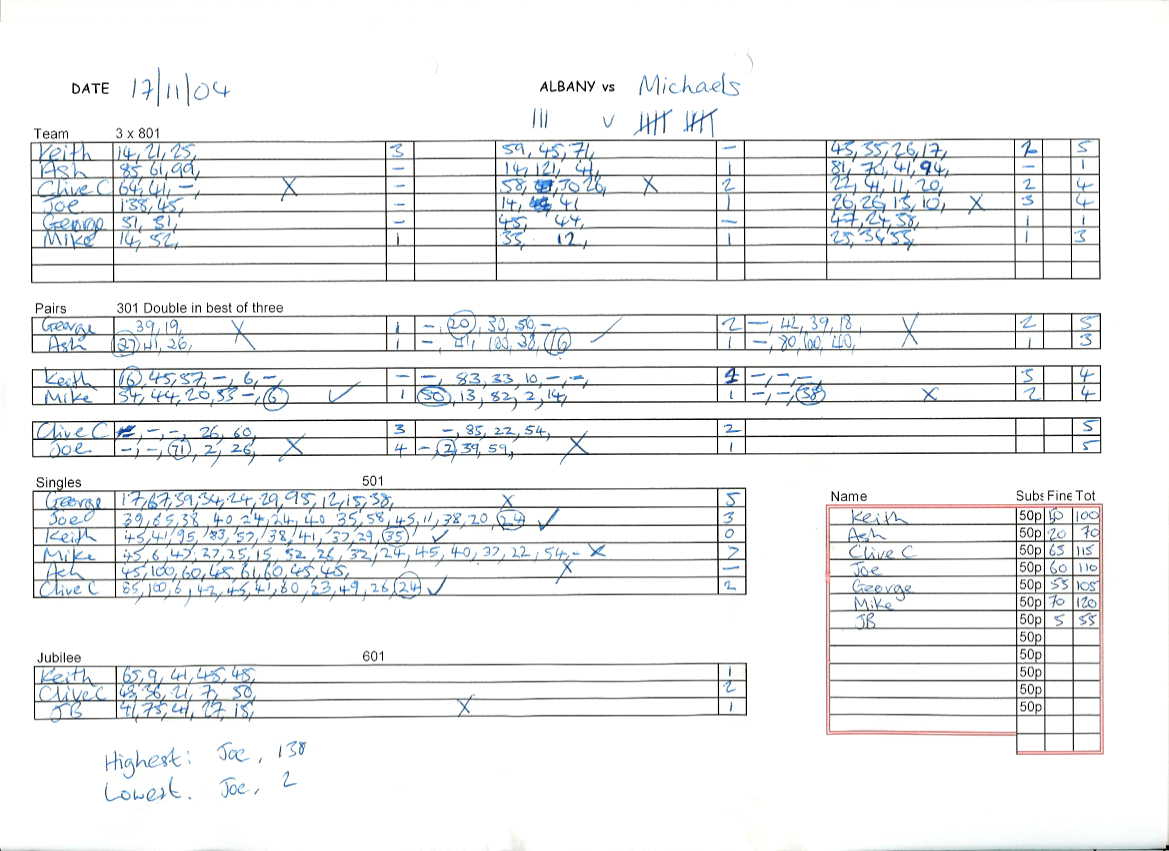 DATE 17/11/04 ALBANY vs Michaels
||| v |||| ||||
Team 3 x 801
Keith 14, 21, 25, 3 59, 45, 71, - 43, 35, 26, 17, 2 5
Ash 85, 61, 99, - 14, 121, 41, 1 81, 70, 41, 94, - 1
Clive C 64, 41, -, X - 58, 30, 26, X 2 22, 41, 11, 20, 2 4
Joe 138, 45, - 14, 41 1 26, 26, 13, 10, X 3 4
George 31, 31, - 45, 44, - 47, 24, 58, 1 1
Mike 14, 52, 1 33, 12, 1 25, 36, 55, 1 3
Pairs 301 Double in best of three
George 39, 19, X 1 -, 20, 30, 50, - ✓ 2 -, 42, 39, 18, X 2 5
Ash 27, 41, 26, 1 -, 41, 38, 16 1 -, 80, 60, 40, 1 3
Keith 16, 45, 57, -, 6, -, - -, 83, 33, 10, -, -, 1 -, -, -, 3 4
Mike 54, 44, 20, 53, -, 6 ✓ 1 50, 13, 82, 2, 14, 1 -, -, 38 X 2 4
Clive C -, -, 26, 60, 3 -, 85, 22, 54, 2 5
Joe -, -, 71, 2, 26, X 4 -, 2, 39, 59, X 1 5
Singles 501
George 17, 67, 39, 34, 24, 29, 95, 12, 15, 38, X 5
Joe 39, 65, 38, 40, 24, 24, 40, 35, 58, 45, 11, 38, 20, 24 ✓ 3
Keith 45, 41, 95, 83, 57, 38, 41, 37, 29, 35 ✓ 0
Mike 45, 6, 47, 27, 25, 15, 52, 26, 32, 24, 45, 40, 37, 22, 54, - X 7
Ash 45, 100, 60, 45, 61, 60, 45, 45, X -
Clive C 85, 100, 6, 42, 45, 41, 60, 23, 49, 26, 24 ✓ 2
Name Subs Fine Tot
Keith 50p 50 100
Ash 50p 20 70
Clive C 50p 65 115
Joe 50p 60 110
George 50p 55 105
Mike 50p 70 120
JB 50p 5 55
50p
50p
50p
50p
50p
Jubilee 601
Keith 65, 9, 41, 45, 45, 1
Clive C 43, 36, 21, 7, 50, 2
JB 41, 75, 41, 27, 15, X 1
Highest: Joe, 138
Lowest. Joe, 2